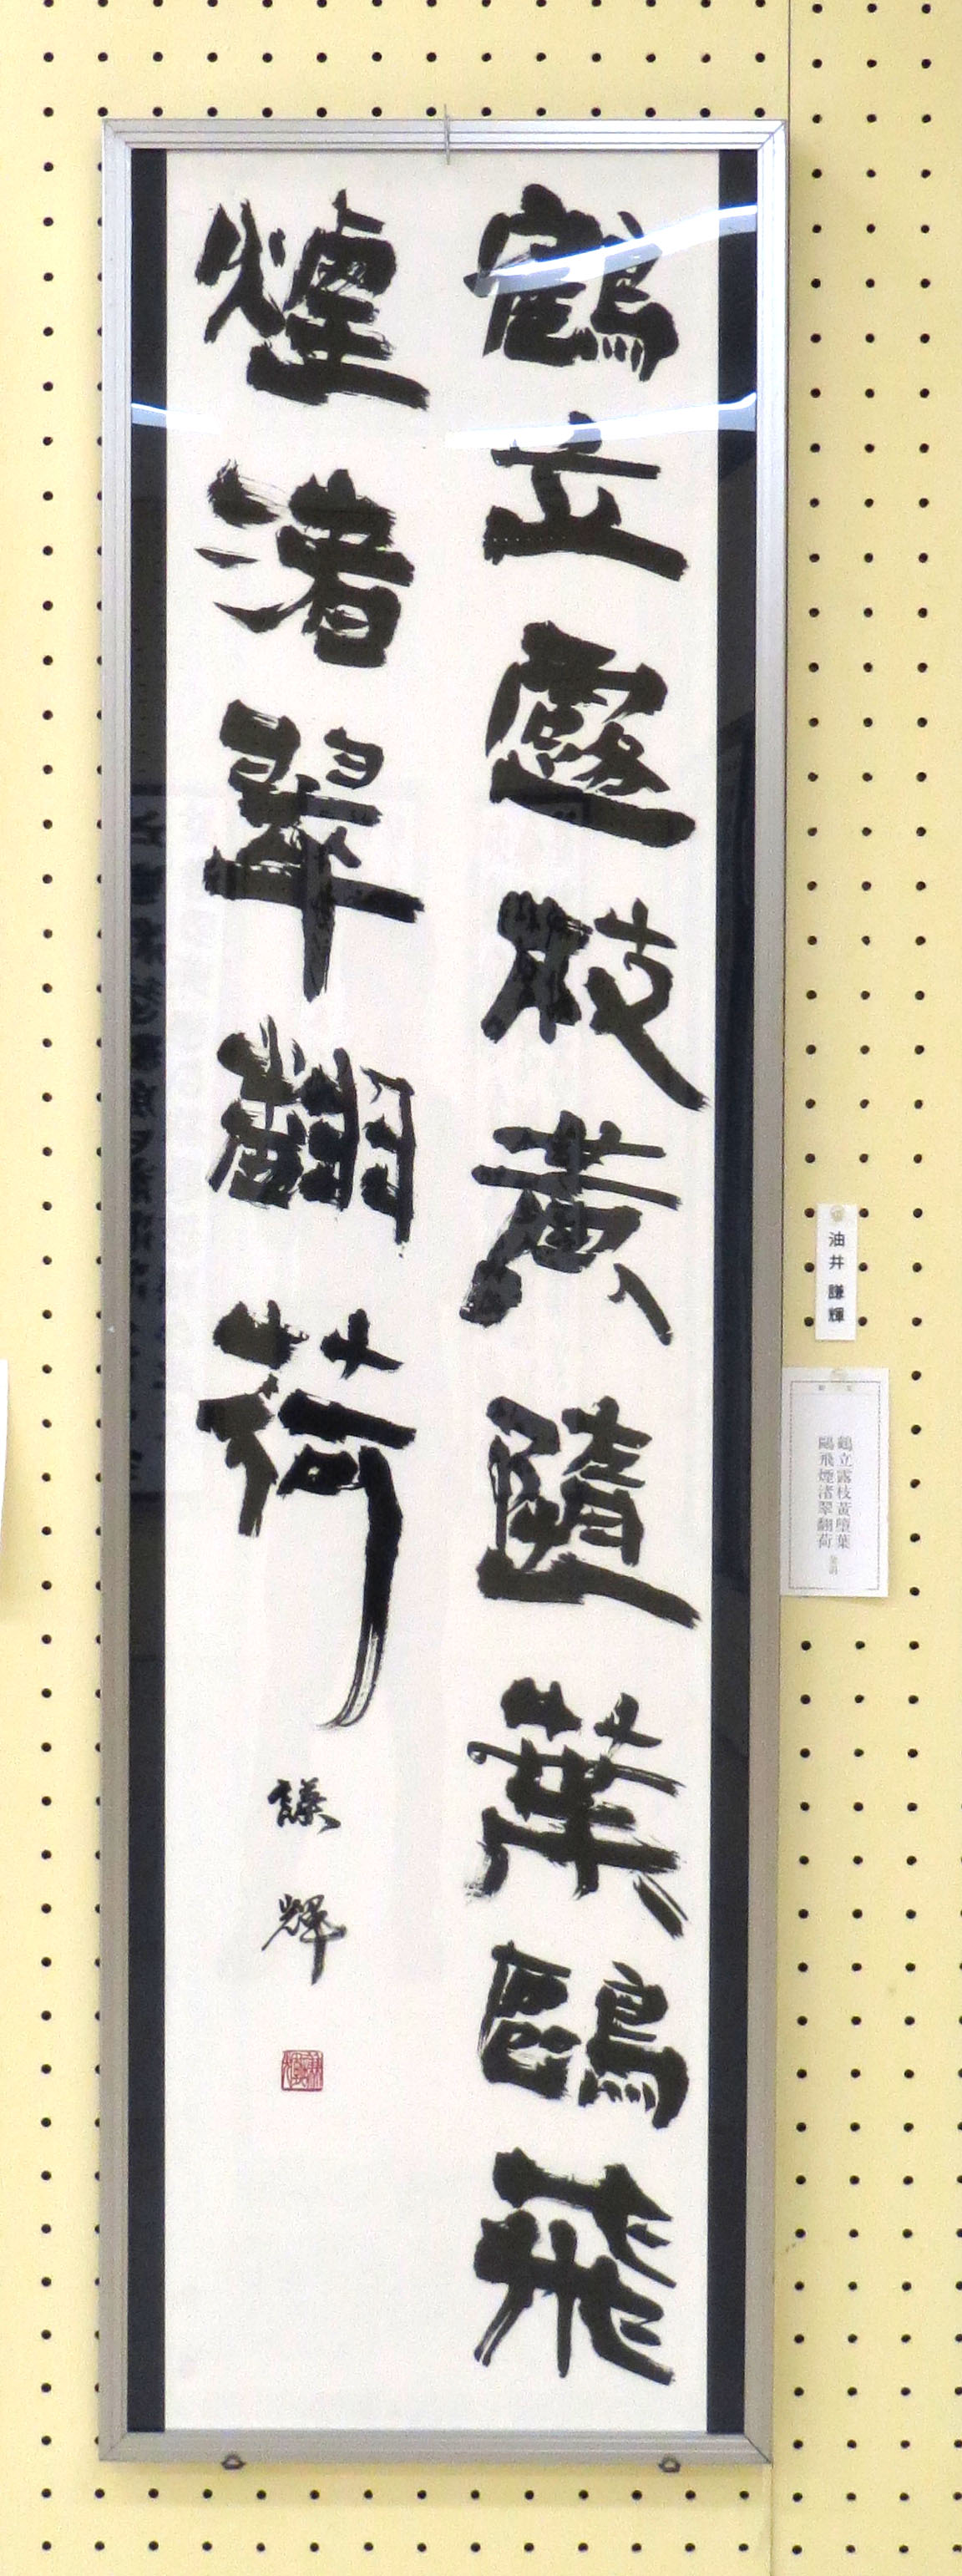 鶴立露枝黃墮葉鷗飛
煙渚翠翻荷
謙輝
油井謙輝
鶴立露枝黃墮葉
鷗飛煙渚翠翻荷